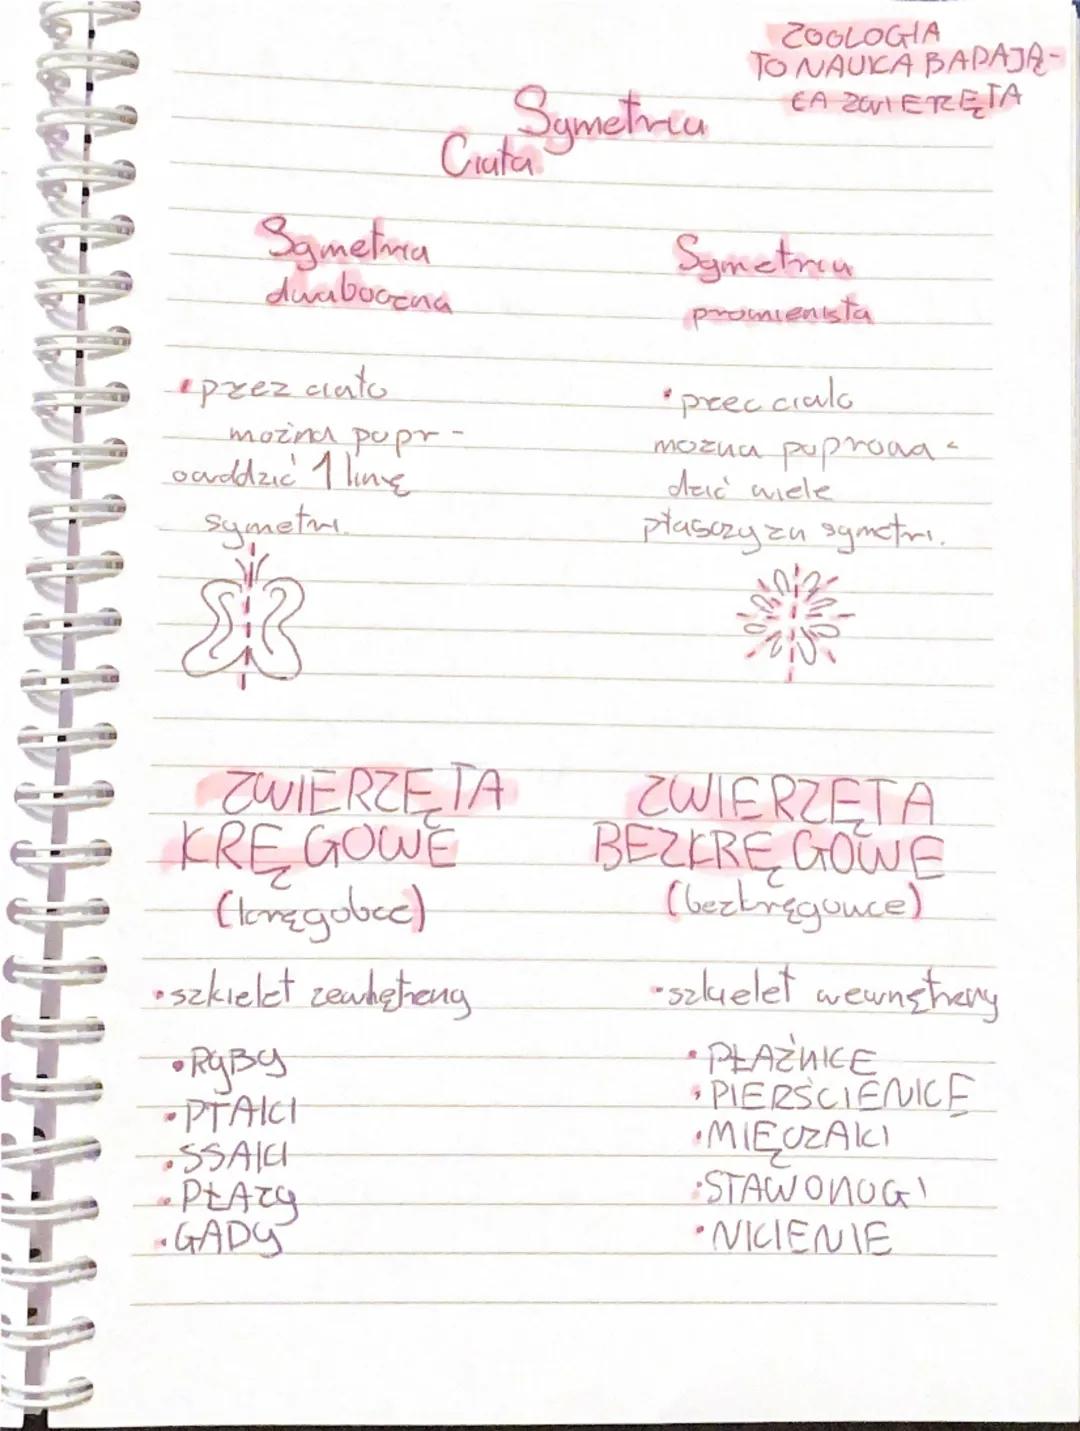 ZOOLOGIA
TO NAUKA BADAJĄ-
CA ZWIERZĘTA
Symetria
Ciała
Symetria
dwuboczna
• przez ciało
można popr-
owddzić 1 linię
symetri.
Symetria
promienista
• przez ciało
można poprowa-
dzić wiele
płasczyzn symetri.
ZWIERZĘTA
KRĘGOWE
(kręgobce)
• szkielet zewnętreny
• RYBY
• PTAKI
• SSAKI
• PŁAZY
• GADY
ZWIERZĘTA
BEZKRĘGOWE
(bezkręgowce)
• szkielet wewnętrzny
• PŁAZIŃCE
• PIERŚCIENICE
• MIĘCZAKI
• STAWONOGI
• NICIENIE